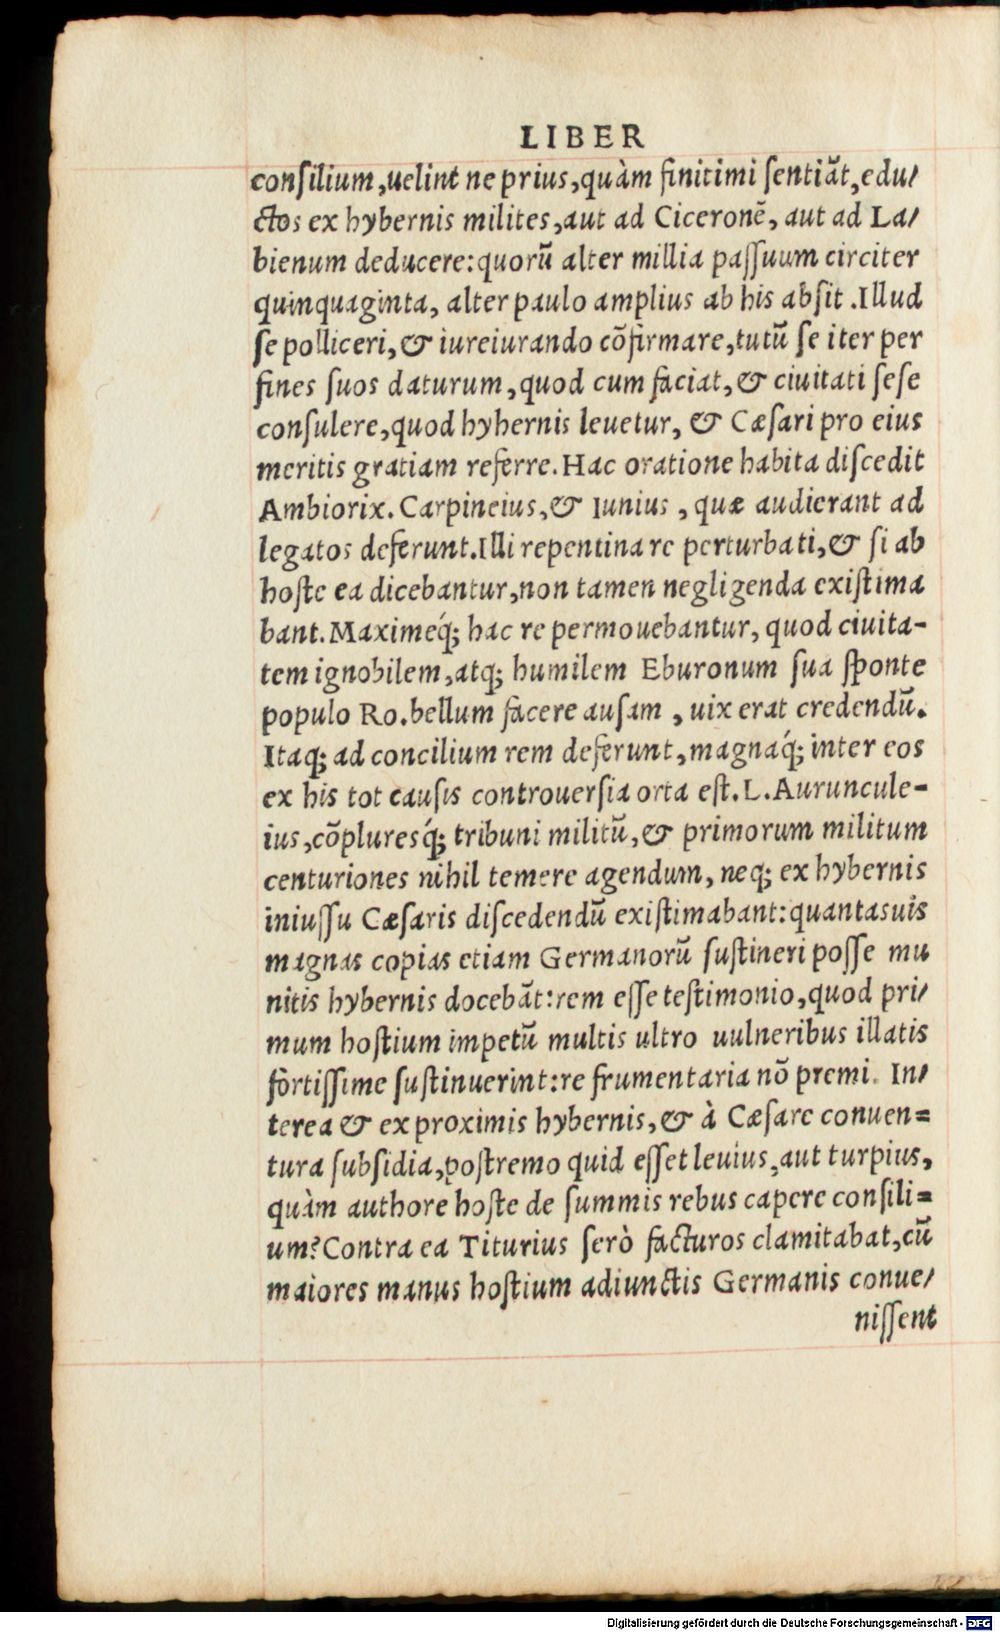 LIBER
conſilium,uelint ne prius,quàm finitimi ſentiãt,edu/
ctos ex hybernis milites,aut ad Ciceronẽ, aut ad La/
bienum deducere:quorũ alter millia paſſuum circiter
quinquaginta, alter paulo amplius ab his abſit .Illud
ſe polliceri,& iureiurando cõfirmare,tutũ ſe iter per
fines ſuos daturum,quod cum faciat,& ciuitati ſeſe
conſulere,quod hybernis leuetur, & Cæſari pro eius
meritis gratiam referre.Hac oratione habita diſcedit
Ambiorix. Carpineius,& Iunius , quæ audierant ad
legatos deferunt.Illi repentina re perturbati,& ſi ab
hoſte ea dicebantur,non tamen negligenda exiſtima
bant.Maximeq́; hac re permouebantur, quod ciuita-
tem ignobilem,atq; humilem Eburonum ſua ſponte
populo Ro.bellum facere auſam , uix erat credendũ.
Itaq; ad concilium rem deferunt,magnaq́; inter eos
ex his tot cauſis controuerſia orta eſt.L.Auruncule-
ius,cõpluresq́; tribuni militũ,& primorum militum
centuriones nihil temere agendum, neq; ex hybernis
iniuſſu Cæſaris diſcedendũ exiſtimabant:quantasuis
magnas copias etiam Germanorũ ſuſtineri poſſe mu
nitis hybernis docebãt:rem eſſe teſtimonio,quod pri/
mum hoſtium impetũ multis ultro uulneribus illatis
fortiſſime ſuſtinuerint:re frumentaria nõ premi. In/
terea & ex proximis hybernis,& à Cæſare conuen=
tura ſubſidia,poſtremo quid eſſet leuius,aut turpius,
quàm authore hoſte de ſummis rebus capere conſili=
um?Contra ea Titurius ſerò facturos clamitabat,cũ
maiores manus hoſtium adiunctis Germanis conue/
niſſent
Digitalisierung gefördert durch die Deutsche Forschungsgemeinschaft - DFG